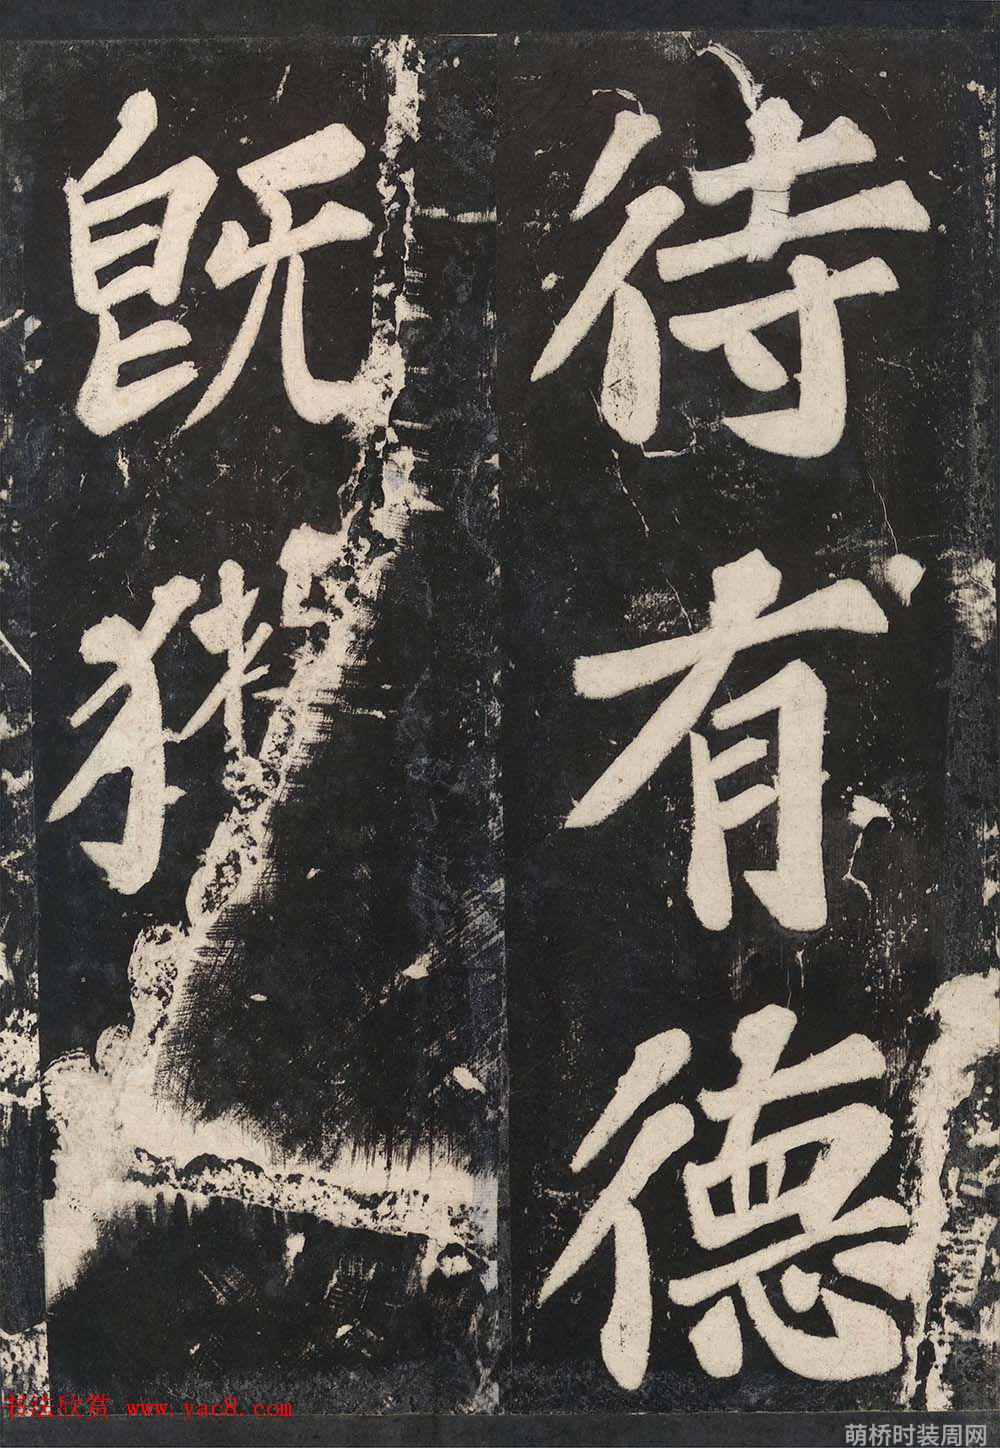 待有德
既獲
书法欣赏 www.yac8.com
萌桥时装周网